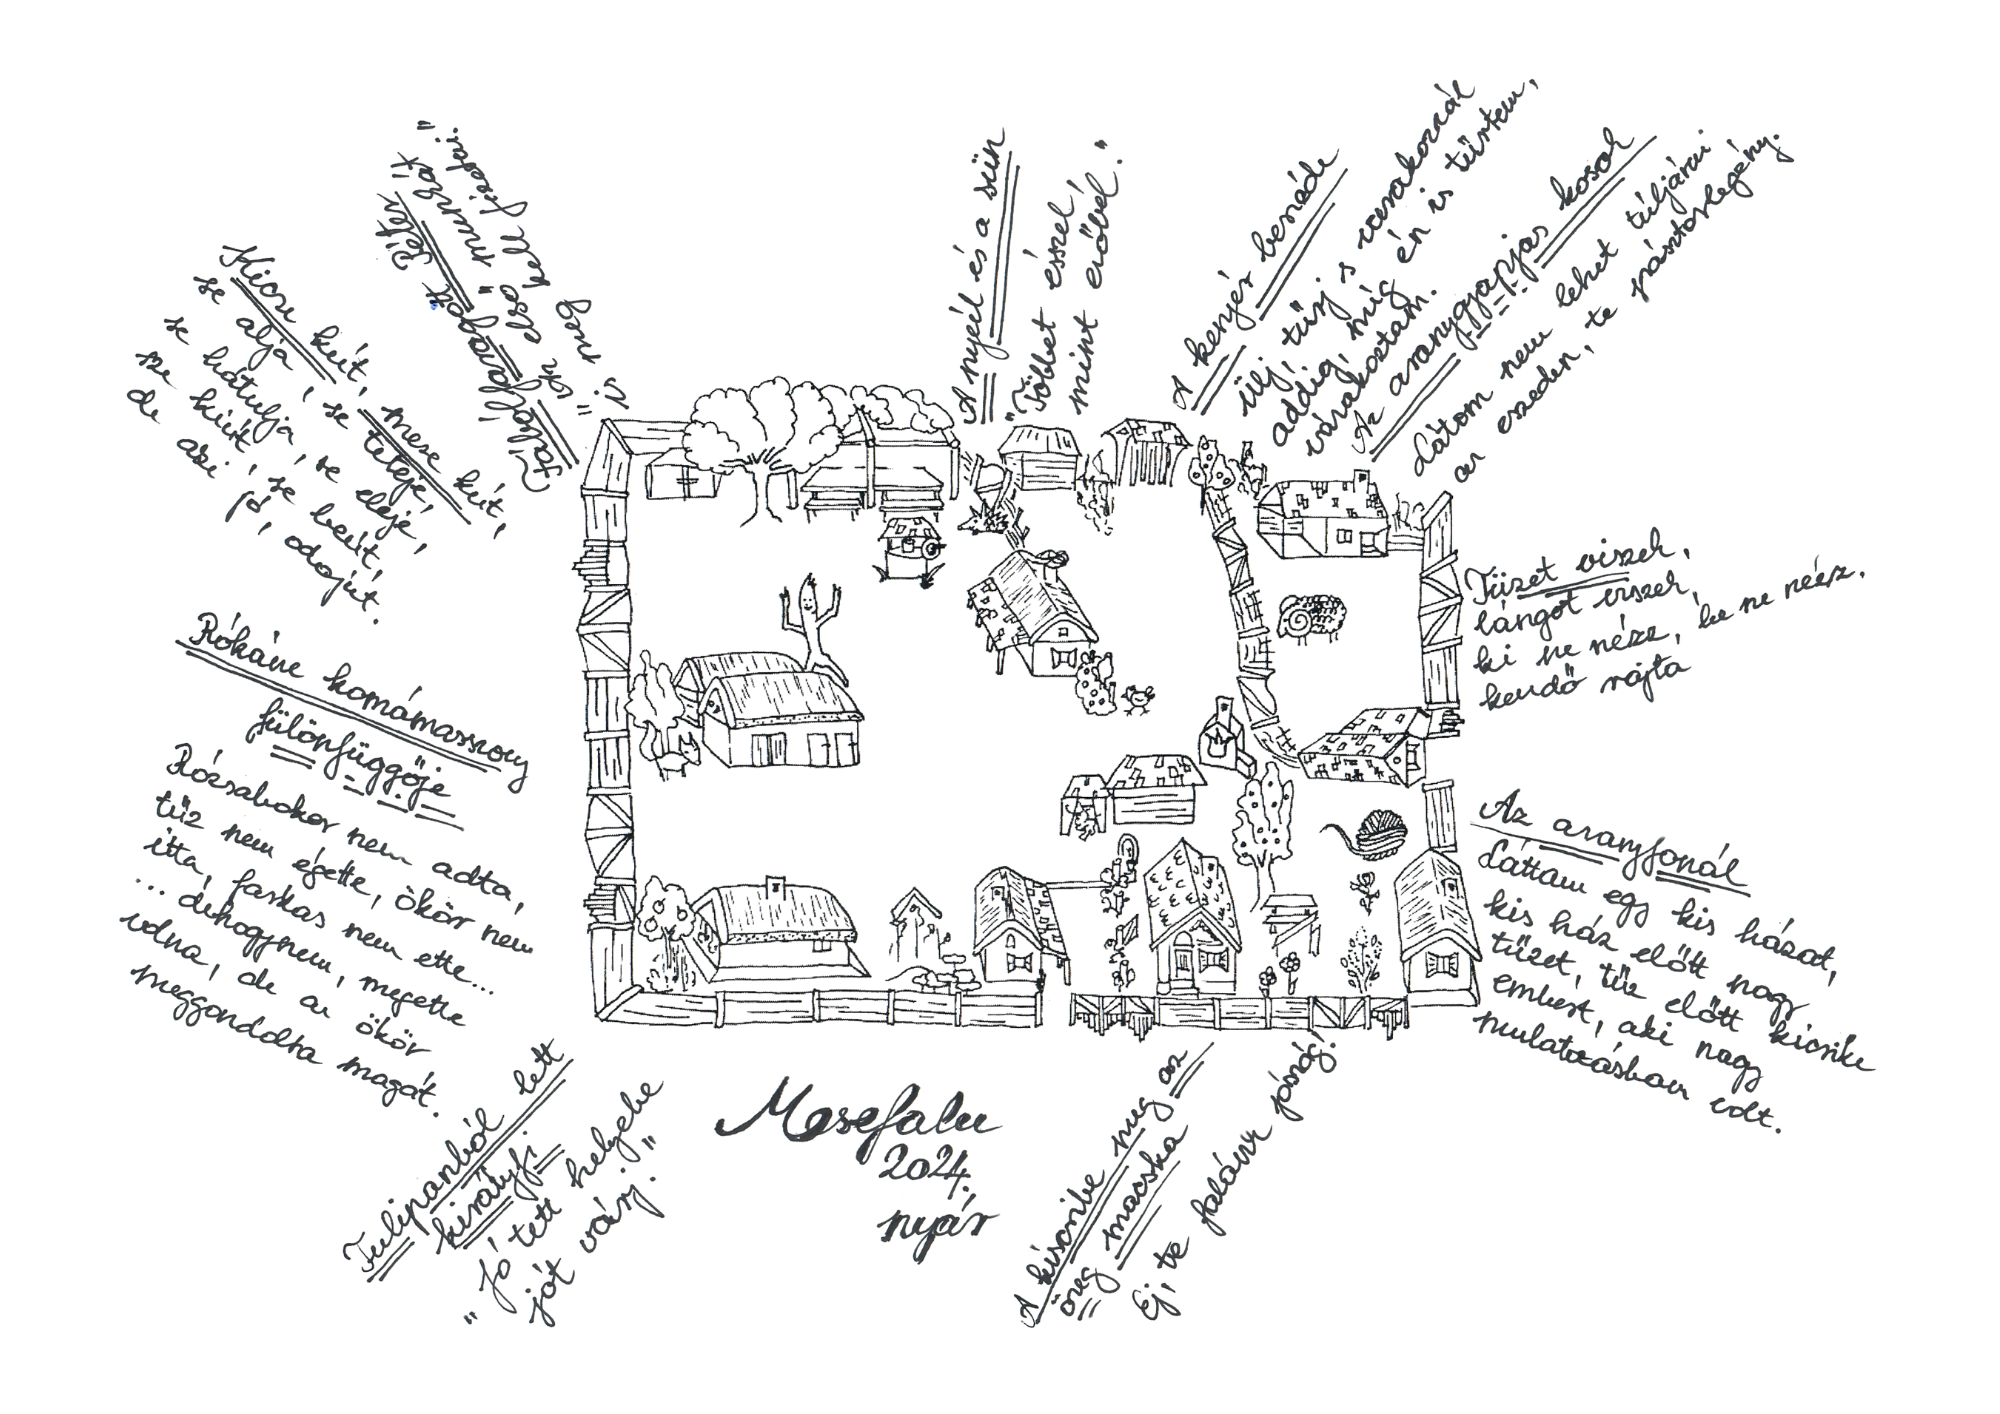 Kicsi kút, mese kút,
se alja, se teteje,
se hátulja, se eleje,
se kiút, se beút,
de aki jó, odajut.
Fábólfaragott Péter
"Az első munkát
is meg kell fizetni."
A nyúl és a sün
"Többet ésszel,
mint erővel."
A kenyér beszéde
ülj, tűrj s várakozzál
addig, míg én is tűrtem,
várakoztam.
Az aranygyapjas kosok
Látom nem lehet túljárni
az eszeden, te pásztorlegény.
Tüzet viszek,
lángot viszek,
ki ne nézz, be ne nézz.
kendő rajta
Az aranyfonál
Láttam egy kis házat,
kis ház előtt nagy
tüzet, tűz előtt kicsike
embert, aki nagy
mulatozásban volt.
A kiscsibe meg az
öreg macska
Ej, te falánk jószág!
Mesefalu
2024.
nyár
Tulipánból lett
királyfi
"Jó tett helyébe
jót várj."
Rókáné komámasszony
fülönfüggője
Rózsabokor nem adta,
tűz nem égette, ökör nem
itta, farkas nem ette...
... dehogynem, megette
volna, de az ökör
meggondolta magát.